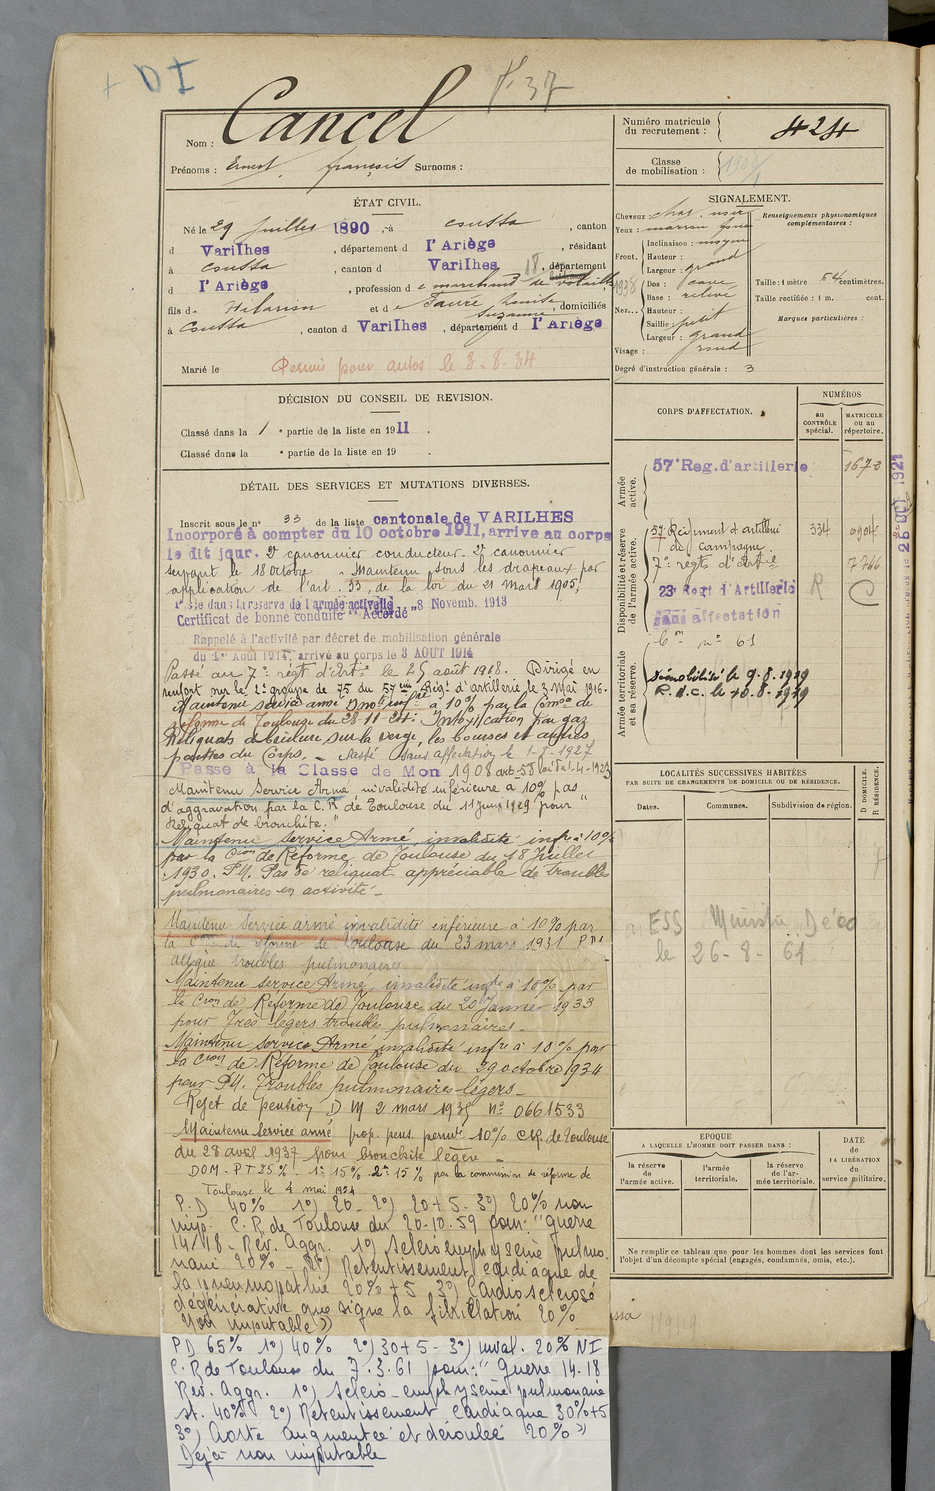 + DI
f° 37
Nom : Cancel
Prénoms : Ernest, françois Surnoms :
Numéro matricule du recrutement : 424
Classe de mobilisation :
ÉTAT CIVIL.
Né le 29 Juillet 1890, à Coussa, canton
d Varilhes, département d l'Ariège, résidant
à Coussa, canton d Varilhes, département
d l'Ariège, profession de marchand de volaille
fils d Hilarion et de Faure Suzanne, domiciliés
à Coussa, canton d Varilhes, département d l'Ariège
Marié le
Permis pour autos le 3-8-34
SIGNALEMENT.
Cheveux
Yeux : marron
Front. Inclinaison : moyen
Hauteur :
Largeur : grand
Nez... Dos : cave
Base : relevé
Hauteur :
Saillie : petit
Largeur : grand
Visage : rond
Degré d'instruction générale : 3
Renseignements physionomiques complémentaires :
Taille : 1 mètre 64 centimètres.
Taille rectifiée : 1 m. cent.
Marques particulières :
DÉCISION DU CONSEIL DE REVISION.
Classé dans la 1 e partie de la liste en 1911.
Classé dans la e partie de la liste en 19 .
DÉTAIL DES SERVICES ET MUTATIONS DIVERSES.
Inscrit sous le n° 33 de la liste cantonale de VARILHES
Incorporé à compter du 10 octobre 1911, arrive au corps
le dit jour. 2e canonnier conducteur. 2e canonnier
servant le 18 octobre. Maintenu sous les drapeaux par
application de l'art. 33, de la loi du 21 Mars 1905,
Passé dans la réserve de l'armée active le 8 Novemb. 1913
Certificat de bonne conduite "Accordé"
Rappelé à l'activité par décret de mobilisation générale
du 1er Août 1914, arrivé au corps le 3 AOUT 1914
Passé au 7e régt d'Artie le 25 août 1918. Dirigé en
renfort sur le 2e groupe de 75 du 57ème Rég. d'artillerie le 3 Mai 1916.
Maintenu service armé infre à 10% par la Comon de
réforme de Toulouse du 28-11-24: Intoxication par gaz
Reliquats de brûlure sur la verge, les bourses et autres
parties du Corps. - Classé sans affectation le 1-8-1927
Passé à la Classe de Mon 1908 art-58 loi du 1-4-1923
Maintenu Service Armé invalidité inférieure à 10% pas
d'aggravation par la C.R de Toulouse du 11 juin 1929 pour "
Reliquat de bronchite."
Maintenu Service Armé, invalidité infre à 10%
par la Cion de Réforme de Toulouse du 18 Juillet
1930. P.M. Pas de reliquat appréciable de troubles
pulmonaires en activité -
Maintenu Service armé invalidité inférieure à 10% par
la Con de réforme de Toulouse du 23 mars 1931
allègue troubles pulmonaires
Maintenu Service Armé, invalidité infre à 10% par
la Cion de Réforme de Toulouse du 20 Janvier 1933
pour Très légers troubles pulmonaires -
Maintenu Service Armé invalidité infre à 10% par
la Cion de Réforme de Toulouse du 29 octobre 1934
pour P.M. Troubles pulmonaires légers -
Rejet de pension D M 2 mars 1935 N° 0661533
Maintenu Service armé prop. pens. permte 10% CR de Toulouse
du 28 avril 1937 pour bronchite légère -
DOM - P.T 25% - 1° 15% 2° 15% par la commission de réforme de
Toulouse le 4 mai 1954
P.D 40% 1°) 20 - 2°) 20+5 - 3°) 20% non
imp. C.R. de Toulouse du 20-10-59 pour: "Guerre
14/18 - Rév. Aggr. 1°) Scléro emphysème pulmo
naire 20% - 2°) Retentissement cardiaque de
la pneumopathie 20% + 5 3°) Cardiosclérose
dégénérative que signe la fibrillation 20%
Non imputable"
PD 65% 1°) 40% 2°) 30+5 - 3°) inval. 20% NI
C.R de Toulouse du 7.3.61 pour: "Guerre 14.18
Rév. Aggr. 1°) Scléro-emphysème pulmonaire
st. 40% 2°) Retentissement cardiaque 30%+5
3°) Aorte augmentée et déroulée 20%"
Déjà non imputable
CORPS D'AFFECTATION.
NUMÉROS
au CONTRÔLE spécial.
MATRICULE ou au répertoire.
Armée active.
57e Reg. d'artillerie 1672
Disponibilité et réserve de l'armée active.
57 Régiment d'artillerie de Campagne. 334 0904
7e régt d'Artie 7766
23e Regt d'Artillerie R
sans affectation
Armée territoriale et sa réserve.
n° 61
26 OCT 1921
LOCALITÉS SUCCESSIVES HABITÉES
PAR SUITE DE CHANGEMENTS DE DOMICILE OU DE RÉSIDENCE.
Dates. Communes. Subdivision de région. D DOMICILE. R RÉSIDENCE.
le 26-8-61
EPOQUE
A LAQUELLE L'HOMME DOIT PASSER DANS :
la réserve de l'armée active.
l'armée territoriale.
la réserve de l'armée territoriale.
DATE de LA LIBÉRATION du service militaire.
Ne remplir ce tableau que pour les hommes dont les services font
l'objet d'un décompte spécial (engagés, condamnés, omis, etc.).